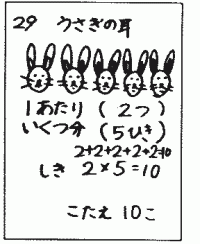 29 うさぎの耳
1あたり (2つ)
いくつ分 (5ひき)
2+2+2+2+2=10
しき 2×5=10
こたえ 10こ